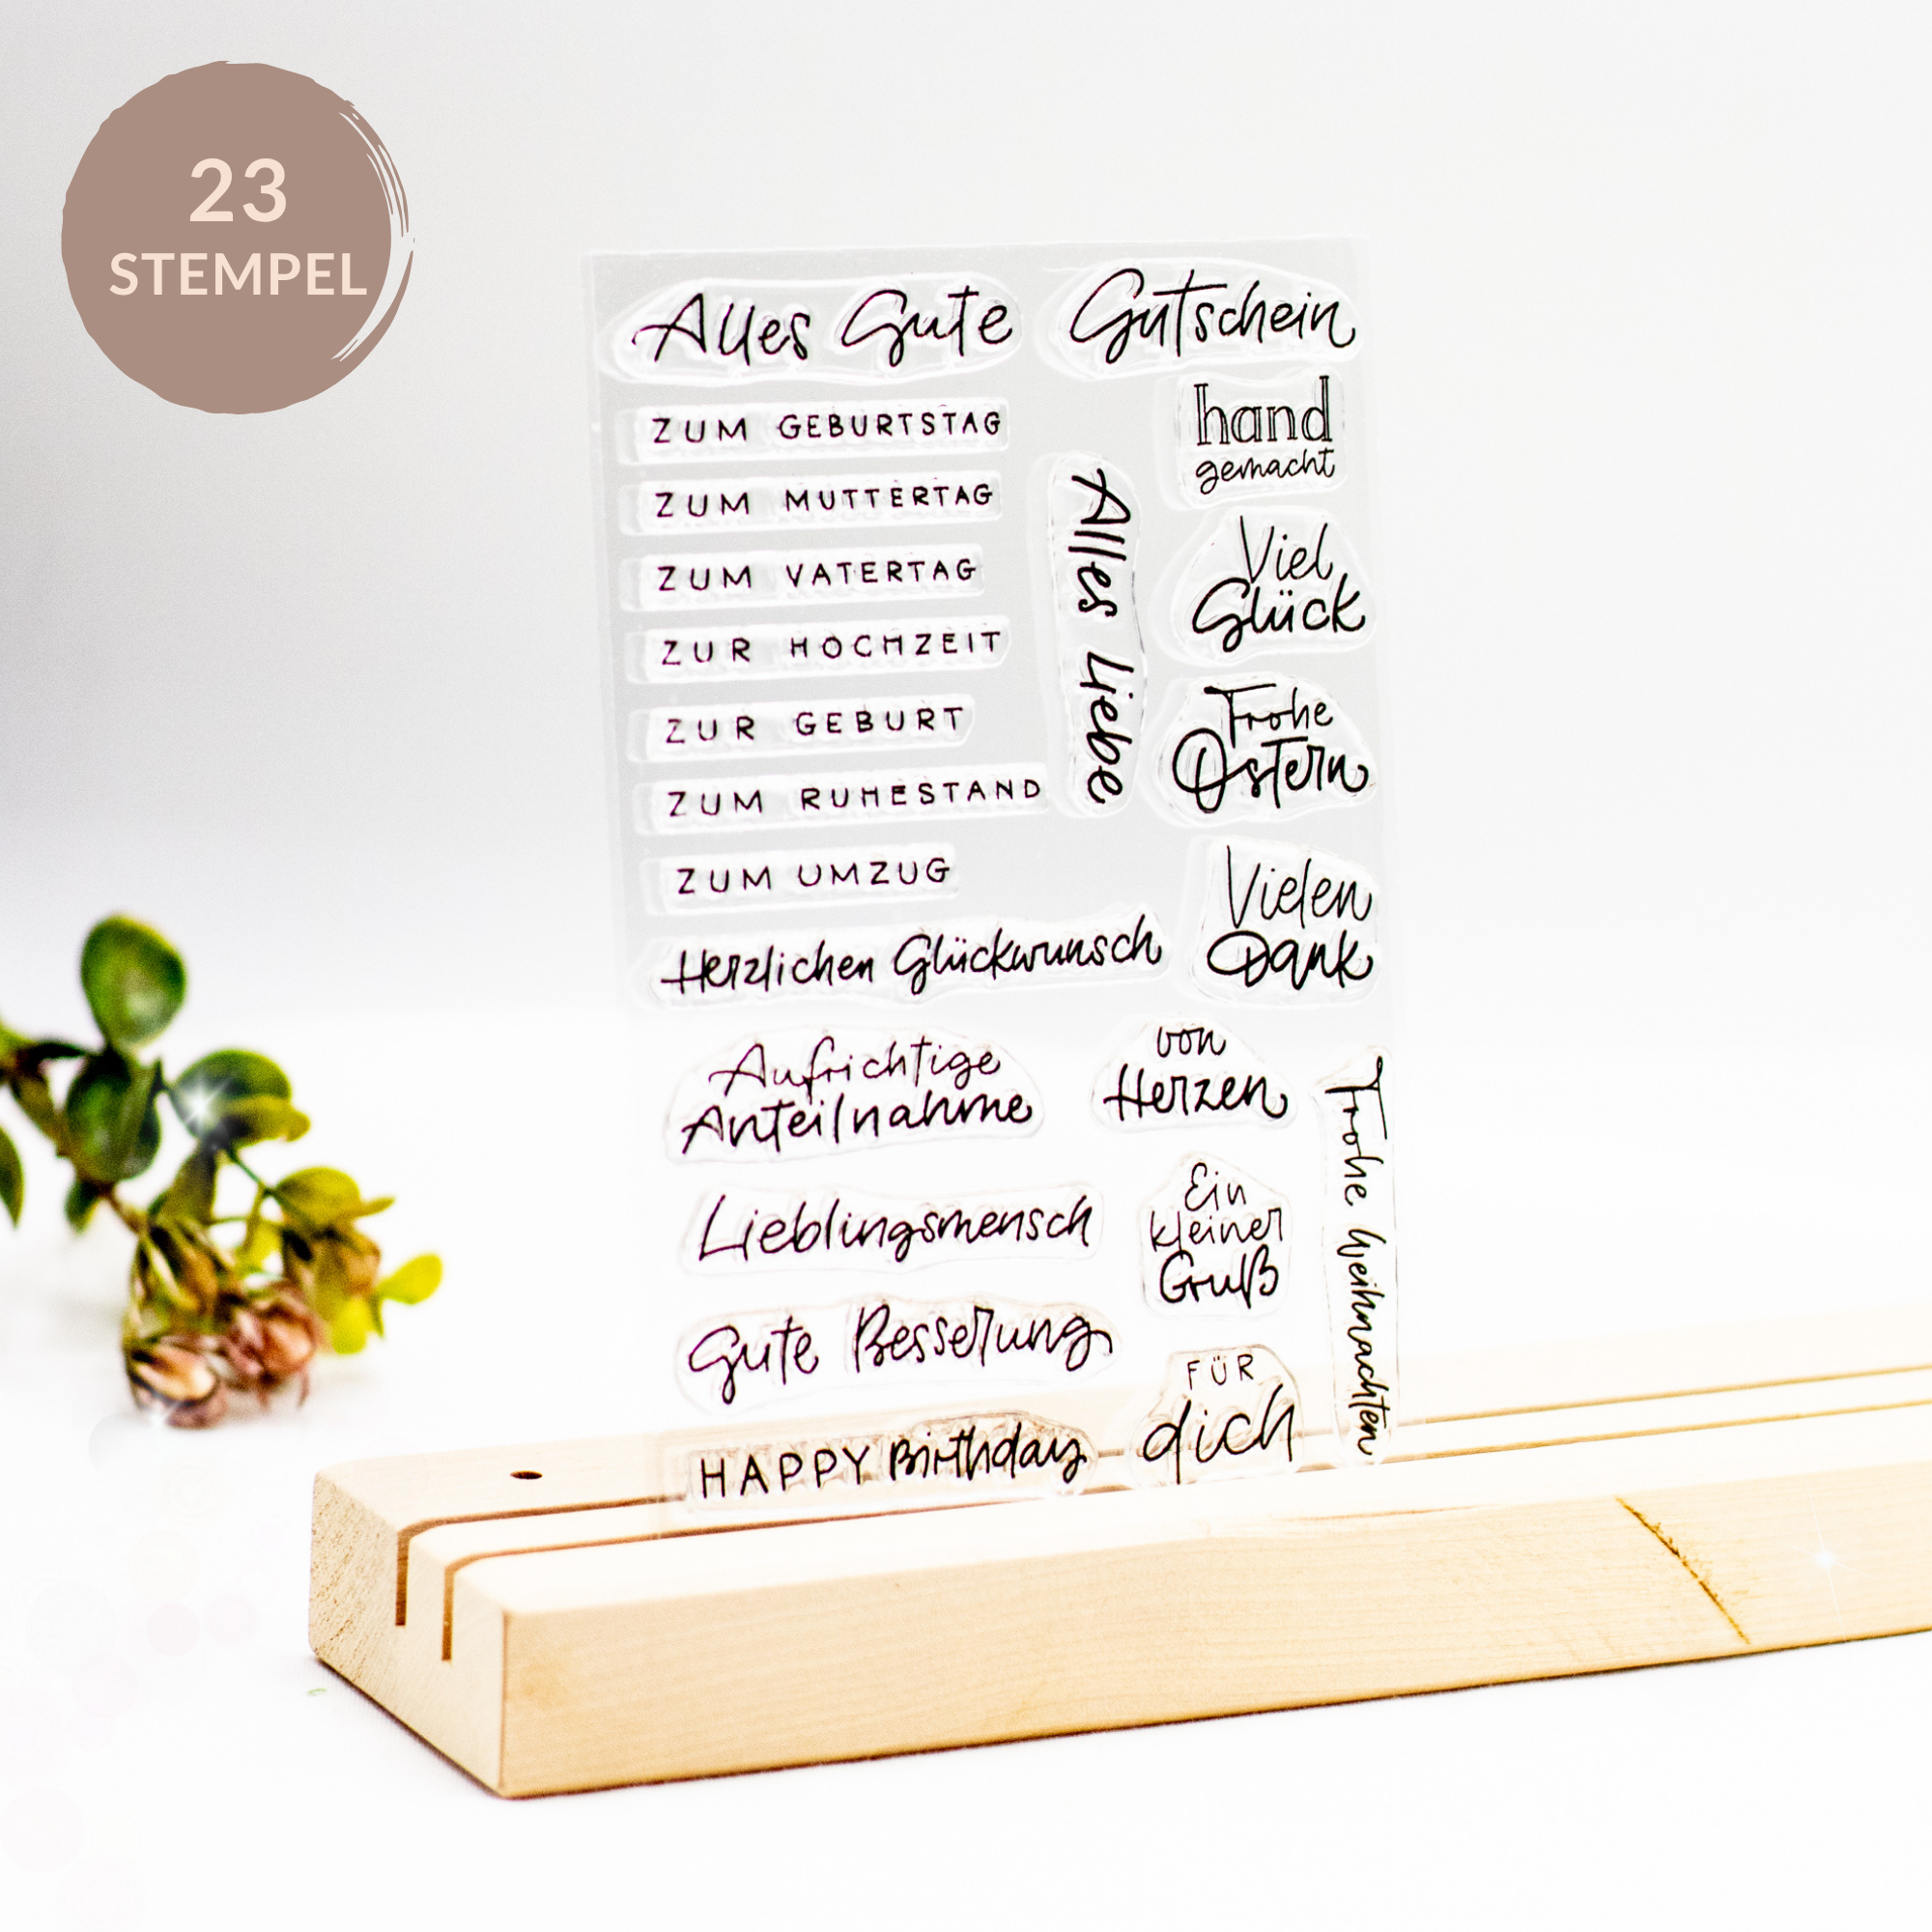 23
STEMPEL
Alles Gute
Gutschein
ZUM GEBURTSTAG
ZUM MUTTERTAG
ZUM VATERTAG
ZUR HOCHZEIT
ZUR GEBURT
ZUM RUHESTAND
ZUM UMZUG
Alles Liebe
hand
gemacht
Viel
Glück
Frohe
Ostern
Vielen
Dank
Herzlichen Glückwunsch
Aufrichtige
Anteilnahme
von
Herzen
Lieblingsmensch
Ein
kleiner
Gruß
Frohe Weihnachten
Gute Besserung
FÜR
dich
HAPPY Birthday